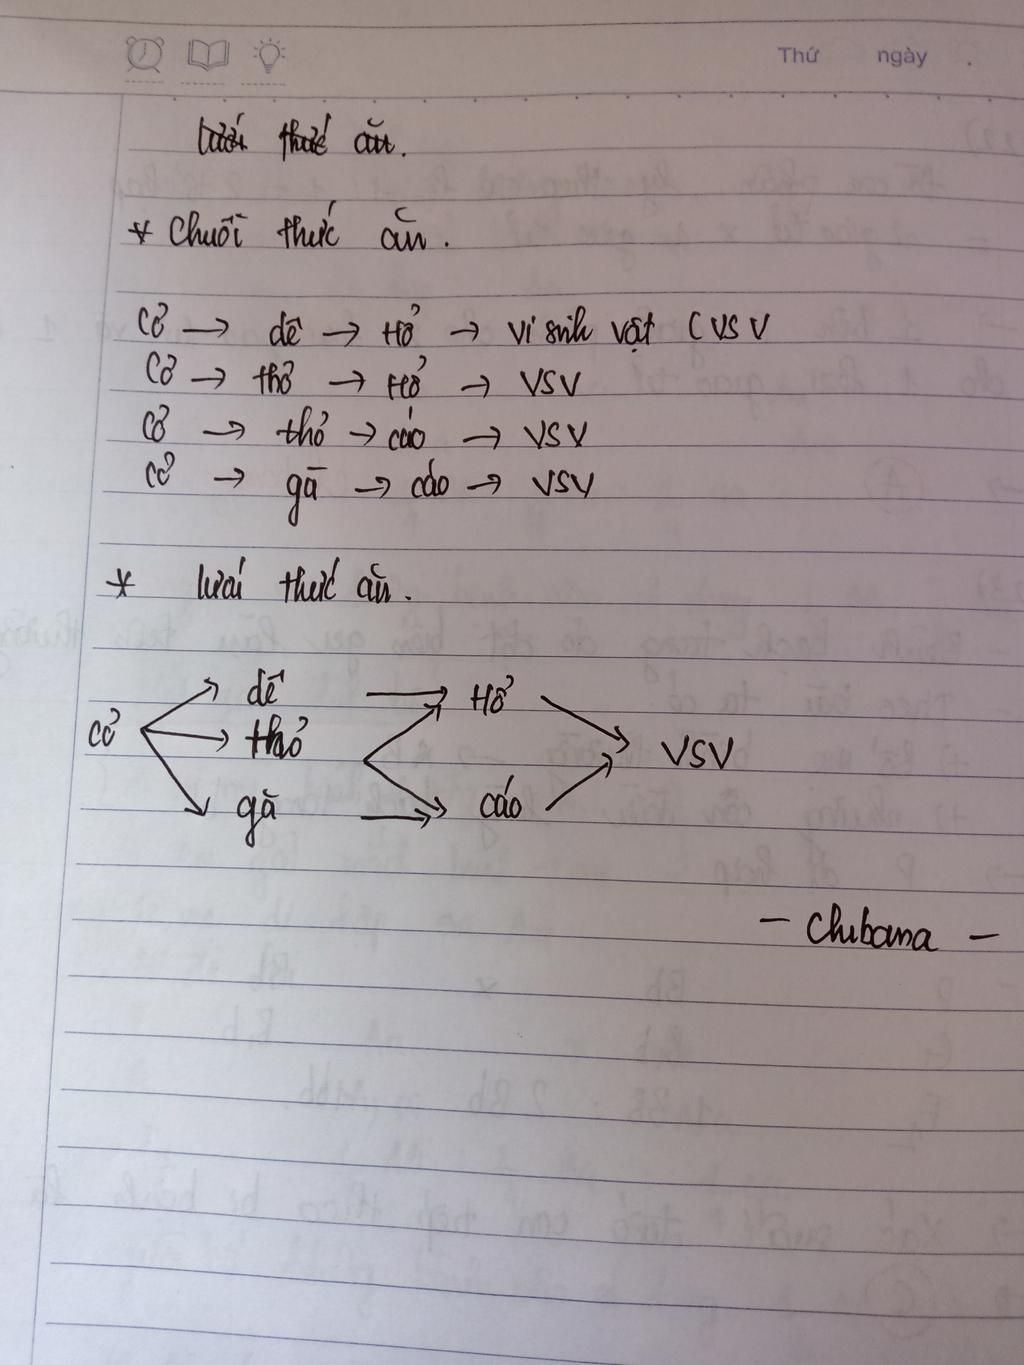 Thứ ngày .
lưới thức ăn.
* Chuỗi thức ăn.
Cỏ → dê → Hổ → vi sinh vật ( VSV
Cỏ → thỏ → Hổ → VSV
Cỏ → thỏ → cáo → VSV
Cỏ → gà → cáo → VSV
* lưới thức ăn.
dê → Hổ
Cỏ → thỏ VSV
gà → cáo
– Chibana –